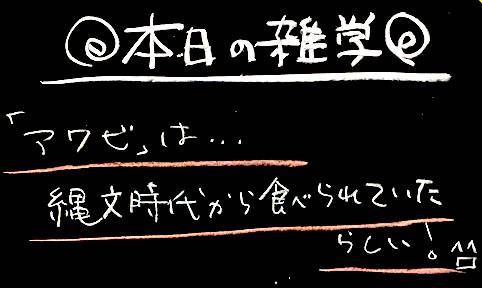 本日の雑学
「アワビ」は…
縄文時代から食べられていた
らしい!